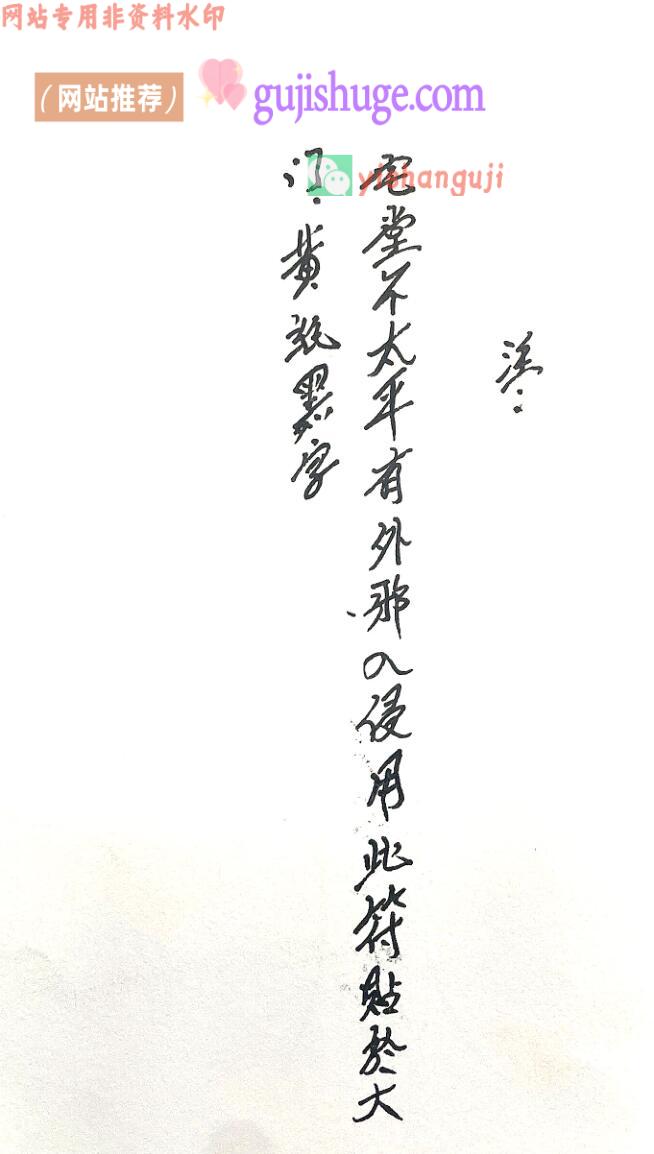 网站专用非资料水印
（网站推荐）
gujishuge.com
yishanguji
法：
宅堂不太平有外邪入侵用此符貼於大
门：黄紙墨字